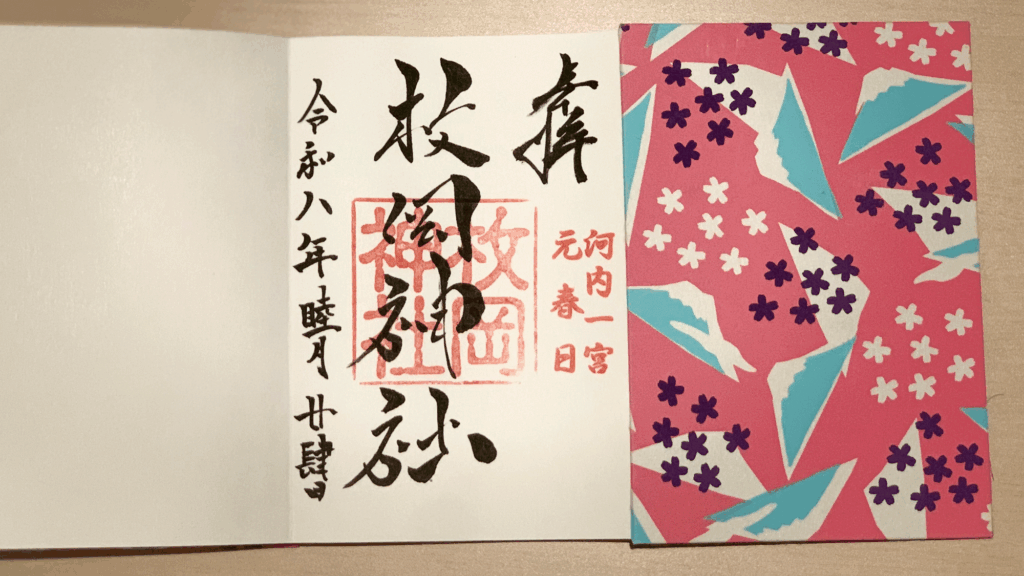 奉拝
河内一宮
元春日
枚岡神社
枚岡
神社
令和八年睦月廿肆日